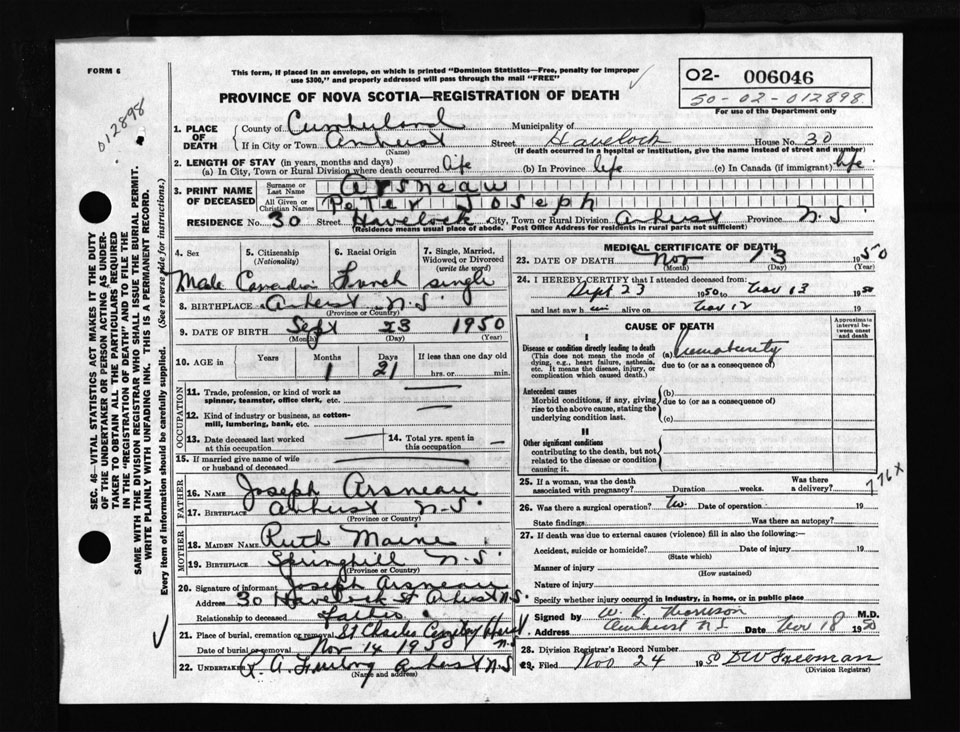 FORM 6
This form, if placed in an envelope, on which is printed "Dominion Statistics—Free, penalty for improper
use $300," and properly addressed will pass through the mail "FREE"
O2- 006046
50-02-012898
For use of the Department only
012898
PROVINCE OF NOVA SCOTIA—REGISTRATION OF DEATH
1. PLACE OF DEATH
County of Cumberland Municipality of
If in City or Town Amherst Street Havelock House No. 30
(Name) (If death occurred in a hospital or institution, give the name instead of street and number)
2. LENGTH OF STAY (in years, months and days)
(a) In City, Town or Rural Division where death occurred life (b) In Province life (c) In Canada (if immigrant) life
3. PRINT NAME OF DECEASED
Surname or Last Name Arsneau
All Given or Christian Names Peter Joseph
RESIDENCE No. 30 Street Havelock City, Town or Rural Division Amherst Province N.S.
(Residence means usual place of abode. Post Office Address for residents in rural parts not sufficient)
4. Sex 5. Citizenship (Nationality) 6. Racial Origin 7. Single, Married, Widowed or Divorced (write the word)
Male Canadian French single
8. BIRTHPLACE Amherst N.S.
(Province or Country)
9. DATE OF BIRTH Sept 23 1950
(Month) (Day) (Year)
10. AGE in Years Months Days If less than one day old
1 21 hrs. or min.
OCCUPATION
11. Trade, profession, or kind of work as
spinner, teamster, office clerk, etc. —
12. Kind of industry or business, as cotton-
mill, lumbering, bank, etc. —
13. Date deceased last worked
at this occupation —
14. Total yrs. spent in
this occupation —
15. If married give name of wife
or husband of deceased —
FATHER
16. NAME Joseph Arsneau
17. BIRTHPLACE Amherst N.S.
(Province or Country)
MOTHER
18. MAIDEN NAME Ruth Maine
19. BIRTHPLACE Springhill N.S.
(Province or Country)
20. Signature of informant Joseph Arsneau
Address 30 Havelock St Amherst N.S.
Relationship to deceased father
21. Place of burial, cremation or removal St Charles
Date of burial or removal Nov 14 1950 N.S.
22. UNDERTAKER R. A. Furlong Amherst N.S.
(Name and address)
MEDICAL CERTIFICATE OF DEATH
23. DATE OF DEATH Nov 13 1950
(Month) (Day) (Year)
24. I HEREBY CERTIFY that I attended deceased from:
Sept 23 1950 to Nov 13 1950
and last saw him alive on Nov 12 19
CAUSE OF DEATH
Approximate interval between onset and death
I
Disease or condition directly leading to death
(This does not mean the mode of
dying, e.g., heart failure, asthenia,
etc. It means the disease, injury, or
complication which caused death.)
(a) Prematurity
due to (or as a consequence of)
Antecedent causes
Morbid conditions, if any, giving
rise to the above cause, stating the
underlying condition last.
(b)
due to (or as a consequence of)
(c)
II
Other significant conditions
contributing to the death, but not
related to the disease or condition
causing it.
776X
25. If a woman, was the death
associated with pregnancy? Duration weeks. Was there
a delivery?
26. Was there a surgical operation? No. Date of operation 19
State findings Was there an autopsy?
27. If death was due to external causes (violence) fill in also the following:—
Accident, suicide or homicide? Date of injury 19
(State which)
Manner of injury
(How sustained)
Nature of injury
Specify whether injury occurred in Industry, in home, or in public place
Signed by W. R. M.D.
Address Amherst N.S. Date Nov 18 1950
28. Division Registrar's Record Number
29. Filed Nov 24 1950 DW Freeman
(Division Registrar)
SEC. 46—VITAL STATISTICS ACT MAKES IT THE DUTY
OF THE UNDERTAKER OR PERSON ACTING AS UNDER-
TAKER TO OBTAIN ALL THE PARTICULARS REQUIRED
IN THE "REGISTRATION OF DEATH" AND TO FILE THE
SAME WITH THE DIVISION REGISTRAR WHO SHALL ISSUE THE BURIAL PERMIT.
WRITE PLAINLY WITH UNFADING INK. THIS IS A PERMANENT RECORD.
Every item of information should be carefully supplied. (See reverse side for instructions.)